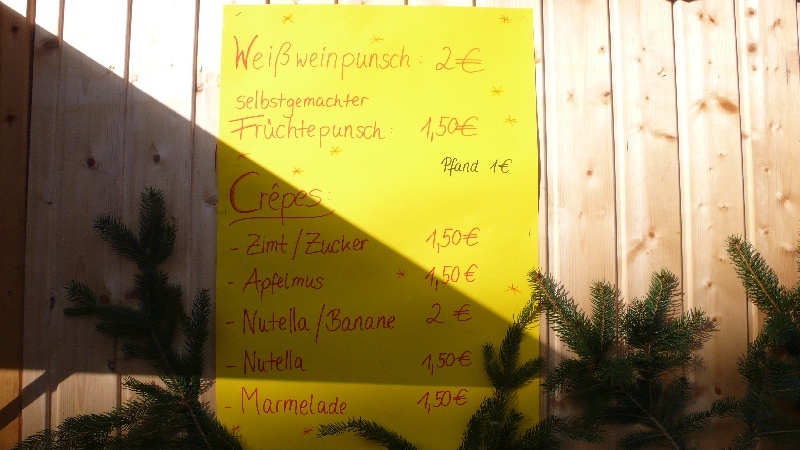 Weißweinpunsch: 2€
selbstgemachter
Früchtepunsch: 1,50€
Pfand 1€
Crêpes:
- Zimt/Zucker 1,50€
- Apfelmus 1,50€
- Nutella/Banane 2€
- Nutella 1,50€
- Marmelade 1,50€